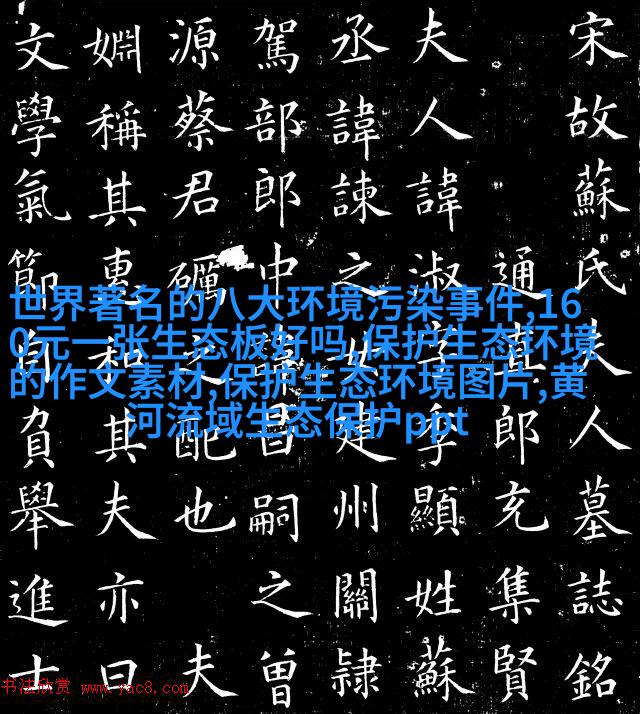 宋故蘇氏夫人墓誌銘
通直郎充集賢
夫人諱淑字季顯姓蘇
丞諱諫之女建州關隷
駕部郎中昌嗣之曾
源蔡君礪之配也夫
婣稱其惠和其夫亦曰
文學氣節自負舉進士
世界著名的八大环境污染事件,16
0元一张生态板好吗,保护生态环境
的作文素材,保护生态环境图片,黄
河流域生态保护ppt
书法欣赏 www.yac8.com